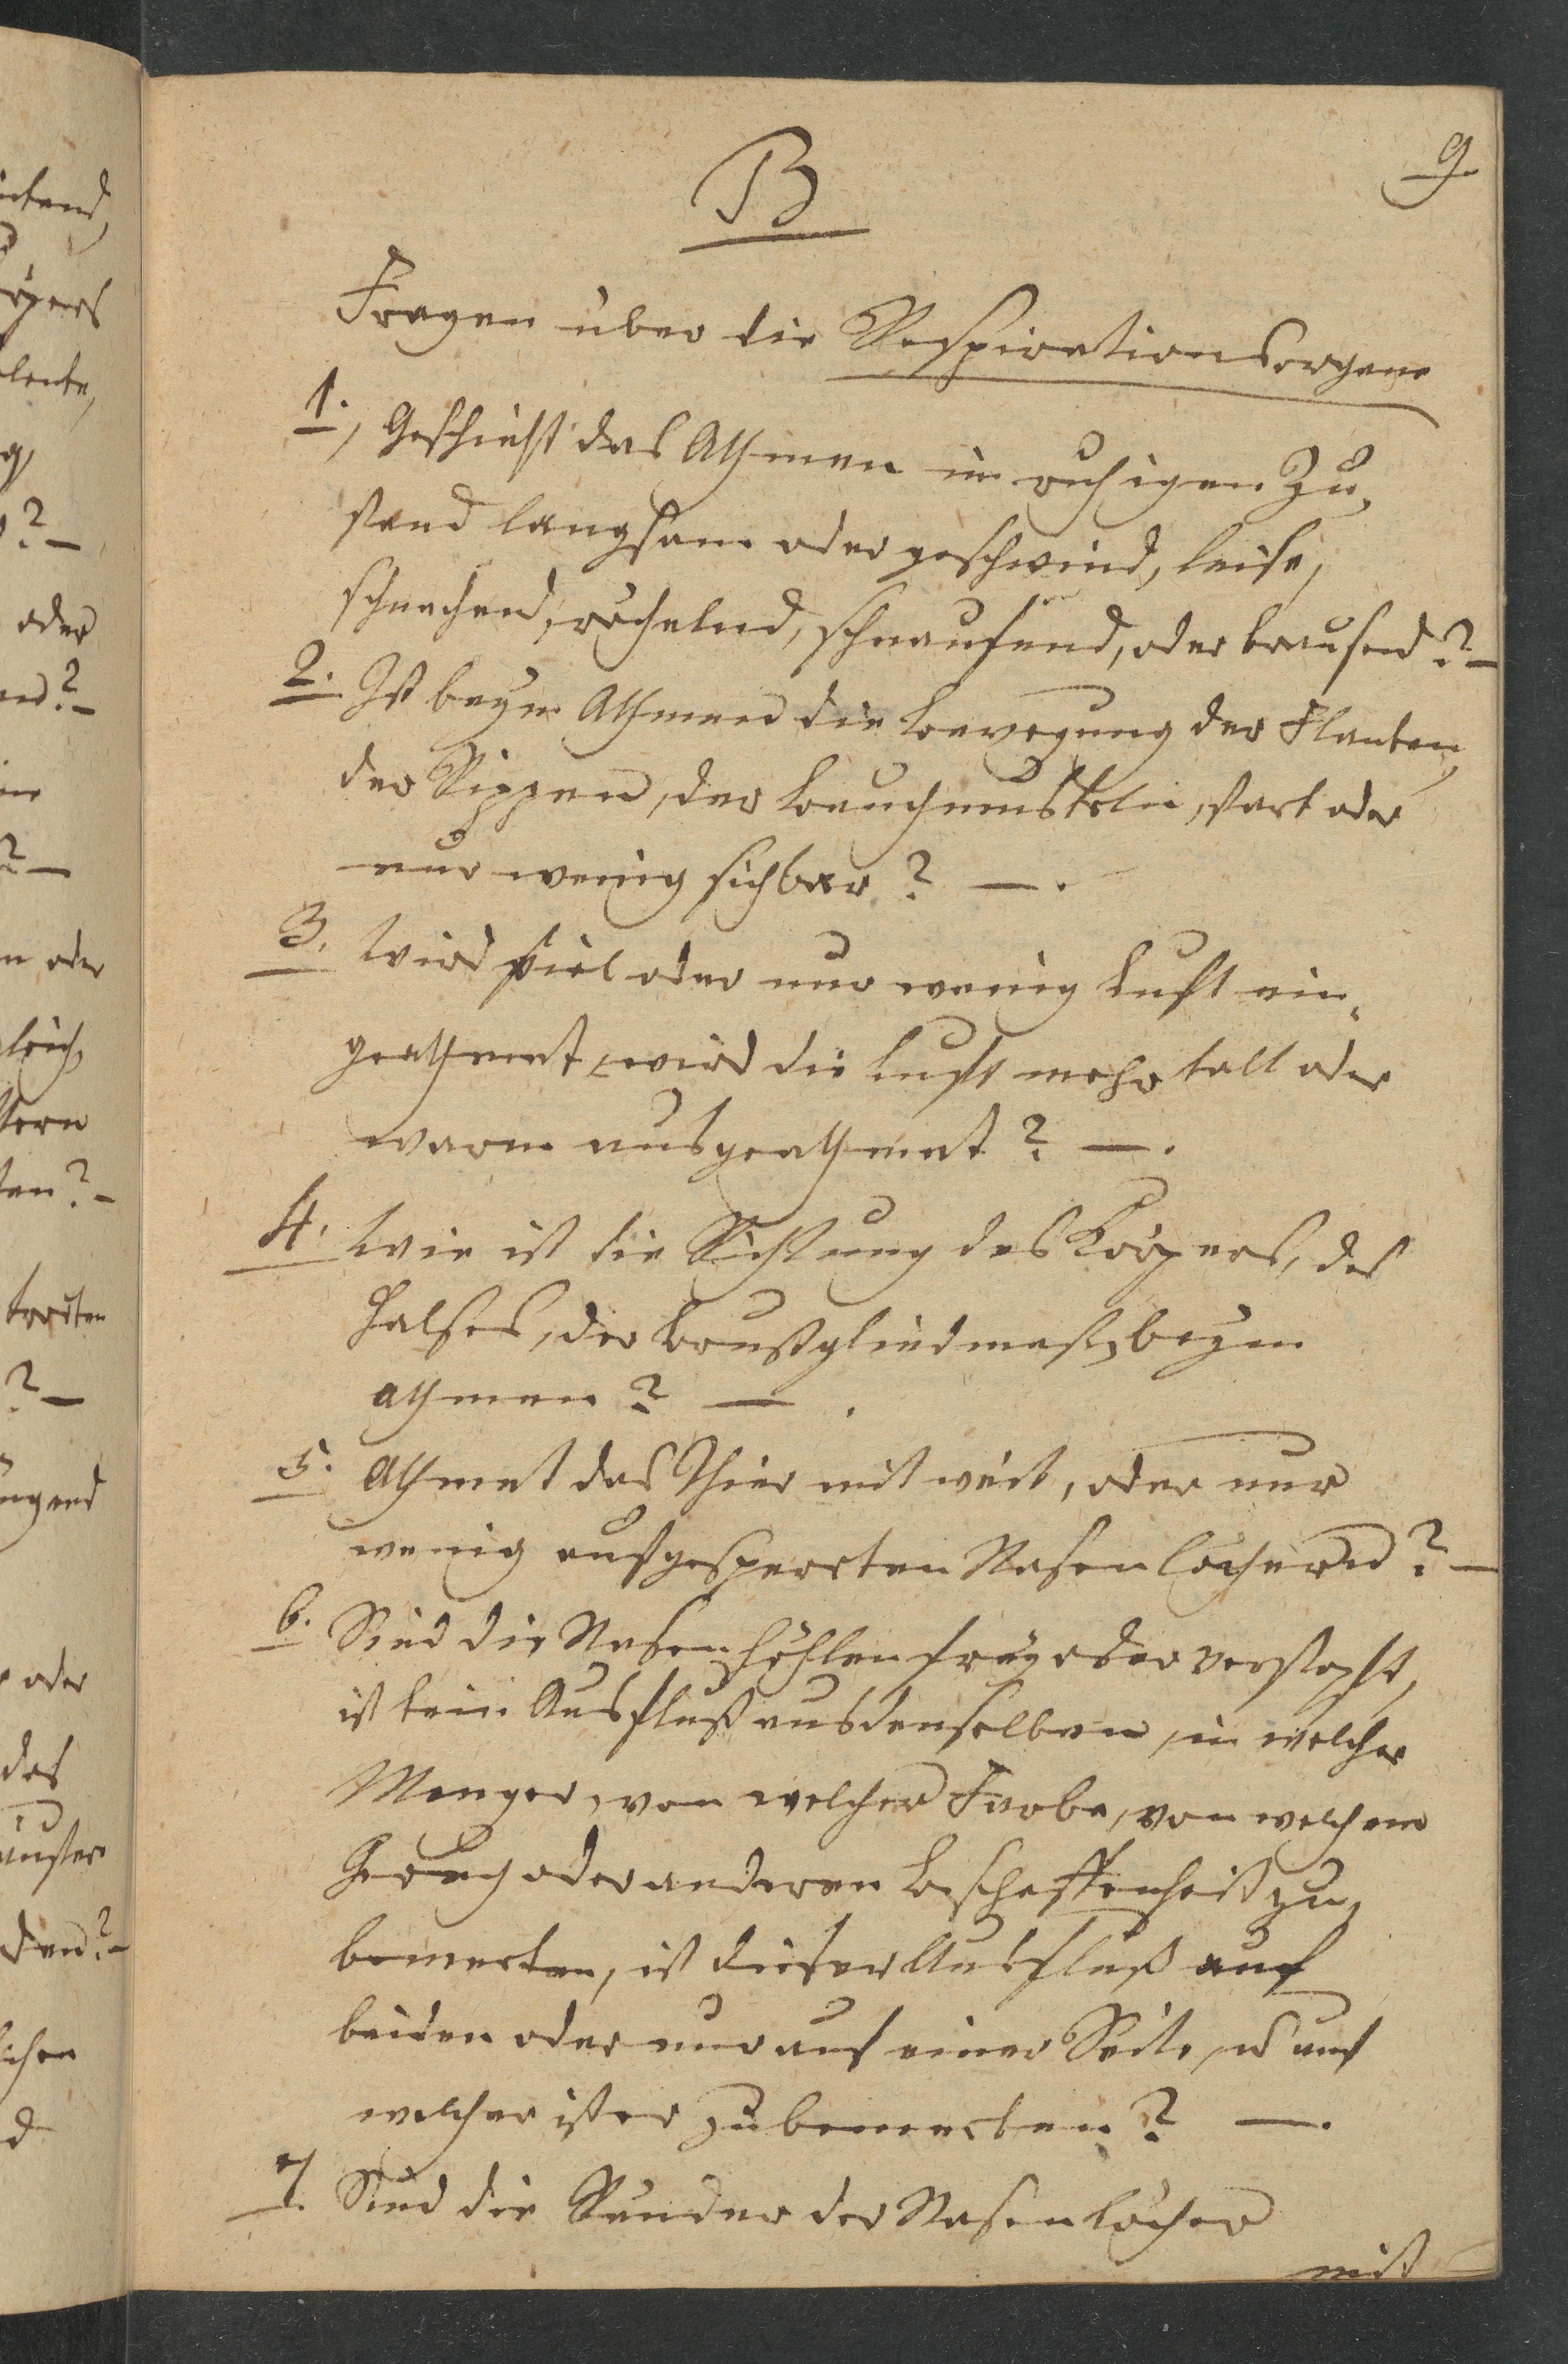 9.
B
Fragen über die Respirationsorgane
1., Geschieht das Athmen im ruhigen Zu,
stand langsam oder geschwind, leise,
schnachend, röchelnd, schnaufend, oder brausend? –
2. Ist beym Athmen die Bewegung der Flanken,
der Rippen, der Bauchmuskeln, stark oder
nur wenig sichbar? –.
3. Wird viel oder nur wenig Luft ein„
geathmet, wird die Luft mehr kalt oder
warm ausgeathmet? –.
4. Wie ist die Richtung des Körpers, des
Halses, der Brustgliedmaßen beym
athmen? –.
5. Athmet das Thier mit weit, oder nur
wenig aufgesperrten Nasenlöchern? –
6. Sind die Nasenhöhlen frey oder verstopft,
ist kein Ausfluß aus denselben, in welcher
Menge, von welcher Farbe, von welchem
Geruch oder anderen Beschaffenheit zu
bemerken, ist dieser Ausfluß auf
beiden oder nur auf einer Seite, u auf
welcher ist er zu bemerken? –.
7. Sind die Ränder der Nasenlöcher
mit
oder
?–
n oder
?–
oder
des